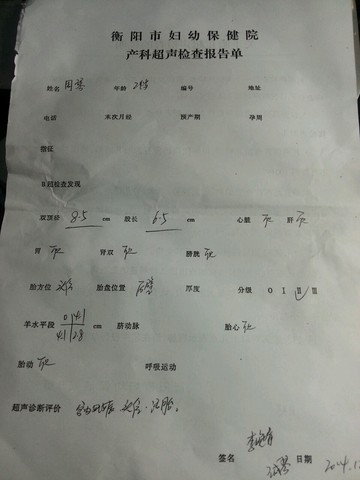 衡阳市妇幼保健院
产科超声检查报告单
姓名 年龄 编号 地址
电话 末次月经 预产期 孕周
指征
B超检查发现
双顶径 8.5 cm 股长 6.5 cm 心脏 可 肝 可
胃 可 肾双 可 膀胱 可
胎方位 胎盘位置 后壁 厚度 分级 0 I II III
羊水平段 0 41 41 28 cm 脐动脉 胎心 可
胎动 可 呼吸运动
超声诊断评价
签名 日期